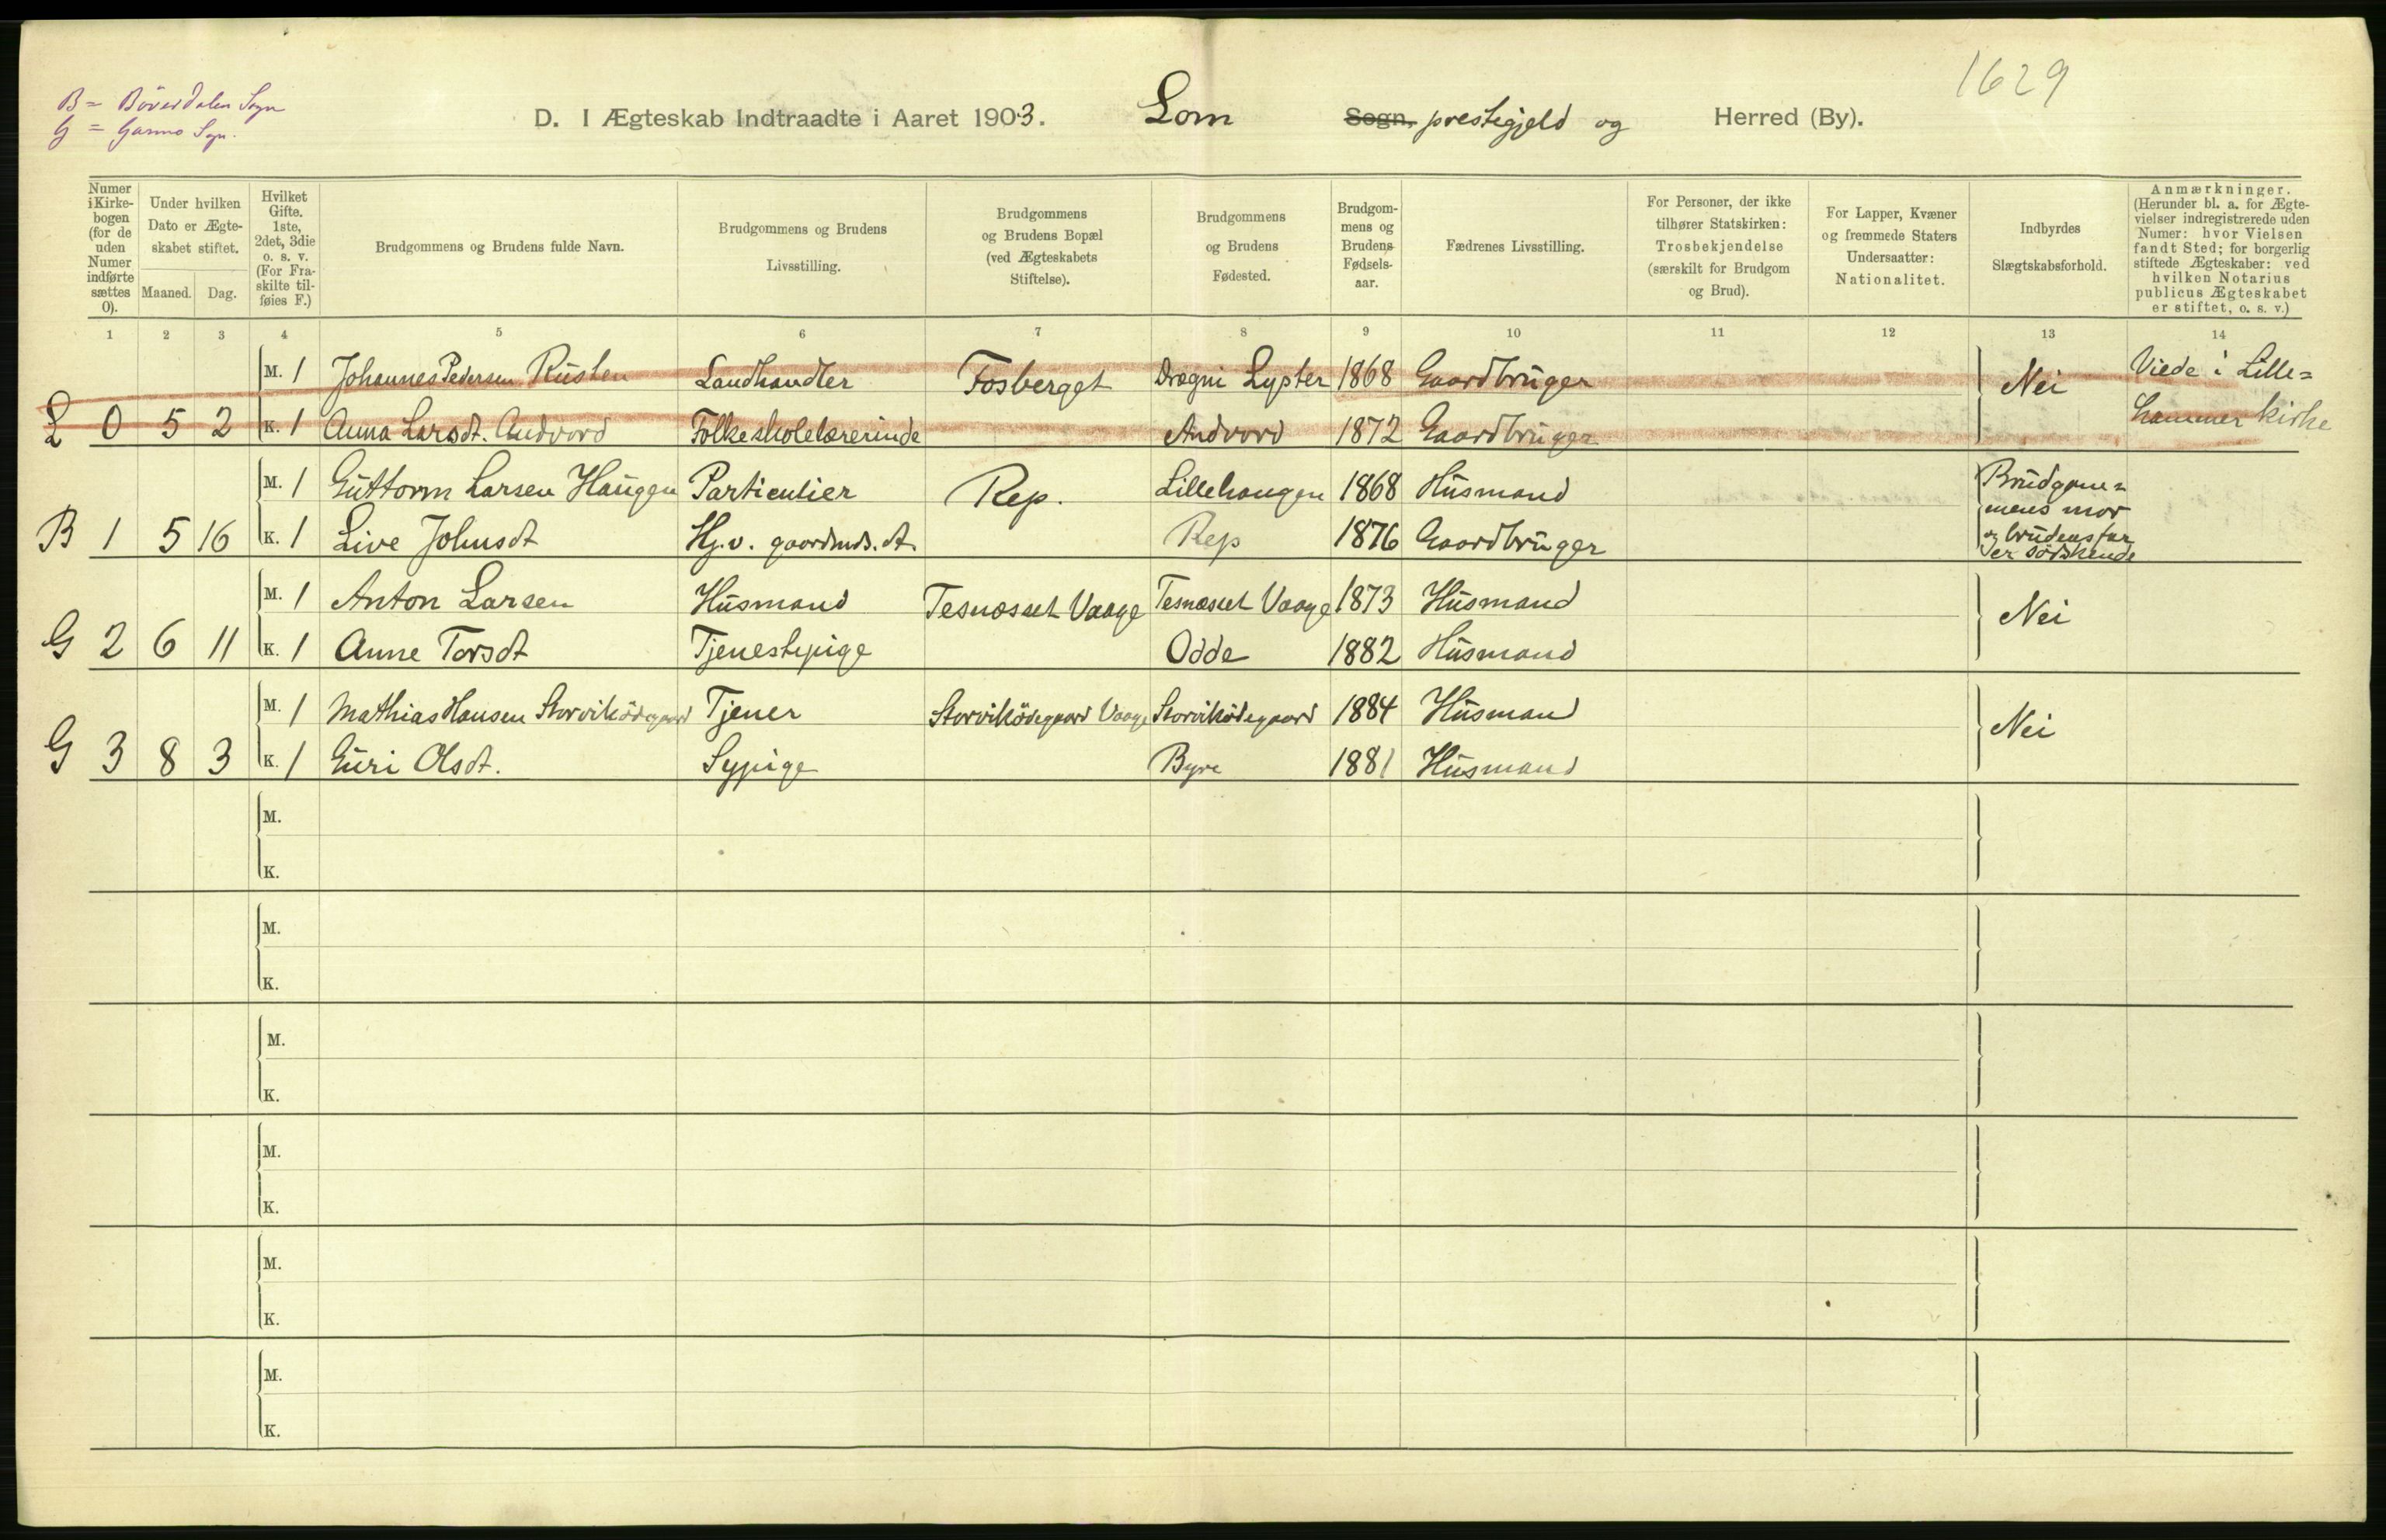 1629
B = Böverdalen Sogn
G = Garmo Sogn.
D. I Ægteskab Indtraadte i Aaret 1903. Lom Sogn, prestegjeld og Herred (By).
Numer i Kirkebogen (for de uden Numer indførte sættes 0).
Under hvilken Dato er Ægteskabet stiftet.
Maaned. Dag.
Hvilket Gifte. 1ste, 2det, 3die o. s. v. (For Fraskilte tilføies F.)
Brudgommens og Brudens fulde Navn.
Brudgommens og Brudens Livsstilling.
Brudgommens og Brudens Bopæl (ved Ægteskabets Stiftelse).
Brudgommens og Brudens Fødested.
Brudgommens og Brudens Fødselsaar.
Fædrenes Livsstilling.
For Personer, der ikke tilhører Statskirken: Trosbekjendelse (særskilt for Brudgom og Brud).
For Lapper, Kvæner og fremmede Staters Undersaatter: Nationalitet.
Indbyrdes Slægtskabsforhold.
Anmærkninger. (Herunder bl. a. for Ægtevielser indregistrerede uden Numer: hvor Vielsen fandt Sted; for borgerlig stiftede Ægteskaber: ved hvilken Notarius publicus Ægteskabet er stiftet, o. s. v.)
1 2 3 4 5 6 7 8 9 10 11 12 13 14
M. 1 Johannes Pedersen Rusten Landhandler Fosberget Drægni Lyster 1868 Gaardbruger Nei Viede i Lille=
L 0 5 2 K. 1 Anna Larsdt. Andvord Folkeskolelærerinde Andvord 1872 Gaardbruger hammer kirke
M. 1 Guttorm Larsen Haugen Particulier Rep. Lillehaugen 1868 Husmand Brudgom=
mens mor
B 1 5 16 K. 1 Live Johnsdt Hj. v. gaardmds. dt. Rep 1876 Gaardbruger og brudens far
er södskende
M. 1 Anton Larsen Husmand Tesnæsset Vaage Tesnæsset Vaage 1873 Husmand Nei
G 2 6 11 K. 1 Anne Torsdt Tjenestepige Odde 1882 Husmand
M. 1 Mathias Hansen Storviködegaard Tjener Storviködegaard Vaage Storviködegaard 1884 Husmand Nei
G 3 8 3 K. 1 Guri Olsdt. Sypige Byre 1881 Husmand
M.
K.
M.
K.
M.
K.
M.
K.
M.
K.
M.
K.